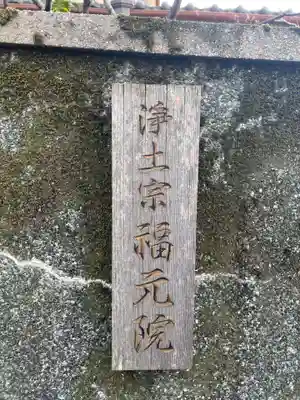 淨土宗福元院